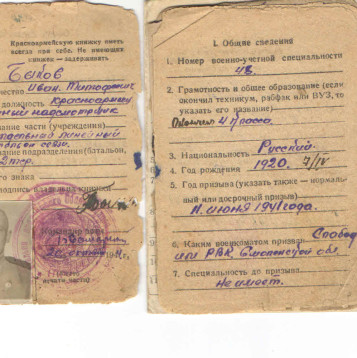 Красноармейскую книжку иметь
всегда при себе. Не имеющих
книжки — задерживать
Быков
Иван Тимофеевич
должность Красноармеец
надсмотрщик
звание части (учреждения)
линейный
связи.
звание подразделения (батальон,
го знака
подпись владельца книжки
Командир
1941г.
(место
печати части)
I. Общие сведения
1. Номер военно-учетной специальности
48.
2. Грамотность и общее образование (если
окончил техникум, рабфак или ВУЗ, то
указать его название)
Окончил 4 класса.
3. Национальность Русский.
4. Год рождения 1920. 7/IV
5. Год призыва (указать также — нормаль-
ный или досрочный призыв)
11. июня 1941 года.
6. Каким военкоматом призван Слобод
РВК Смоленской обл.
7. Специальность до призыва
Не имеет.